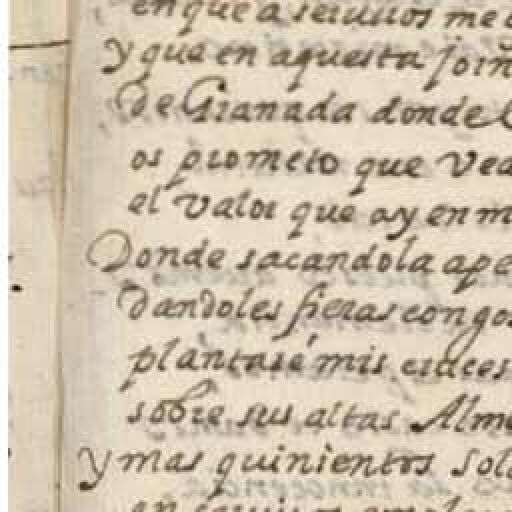 en que a seruiros me
y que en aquesta jorñ
de Granada donde
os prometo que vea
el valor que ay en m
Donde sacandola ape
dandoles fieras congo
plantare mis cruces
sobre sus altas Alme
y mas quinientos sol
en